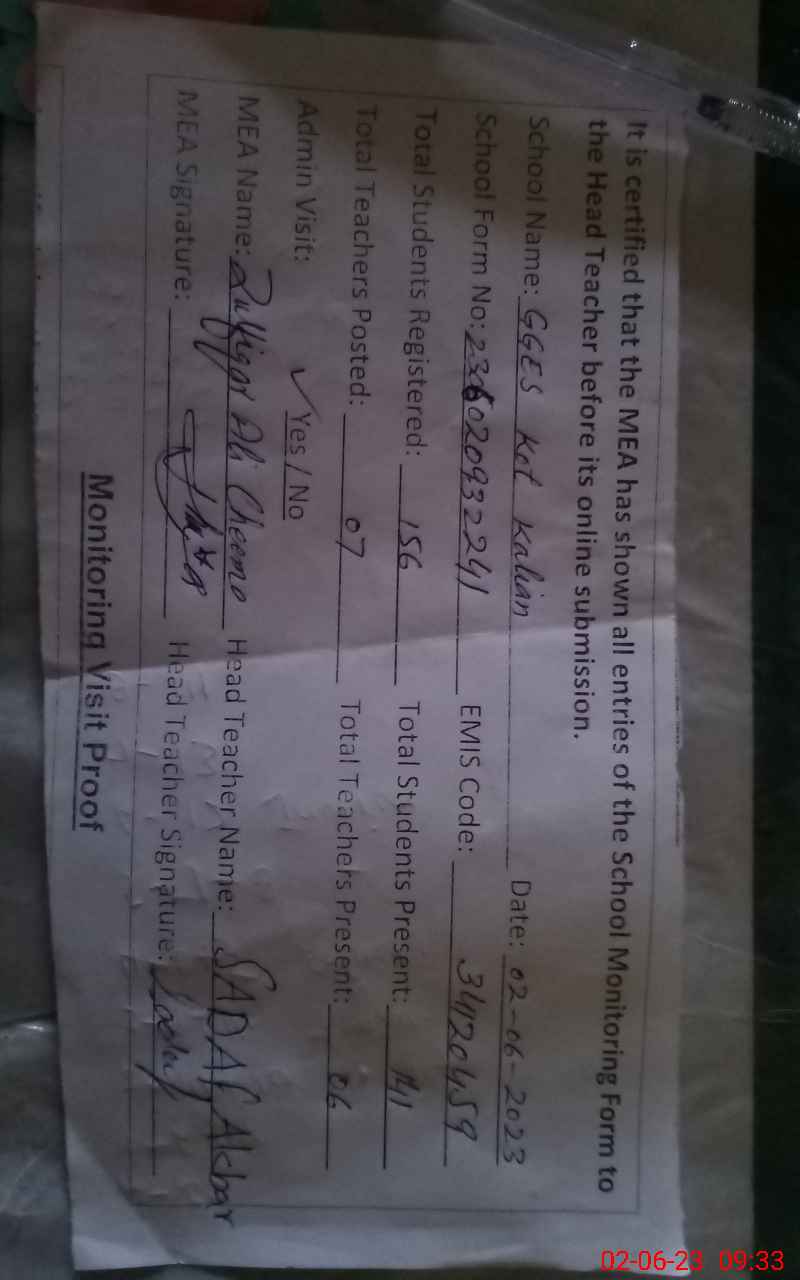 It is certified that the MEA has shown all entries of the School Monitoring Form to
the Head Teacher before its online submission.
School Name: GGES Kot Kahian Date: 02-06-2023
School Form No: 2306020932241 EMIS Code: 34120459
Total Students Registered: 156 Total Students Present: 141
Total Teachers Posted: 07 Total Teachers Present: 06
Admin Visit: ✓ Yes / No
MEA Name: Zulfiqar Ali Cheema Head Teacher Name: SADAF Akbar
MEA Signature: Head Teacher Signature: Sadaf
Monitoring Visit Proof
02-06-23 09:33